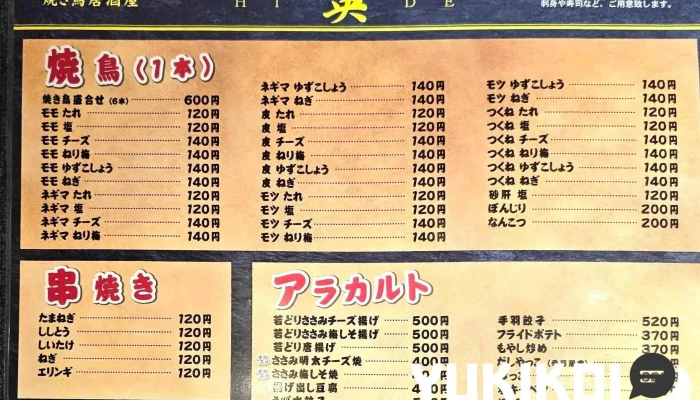 焼き鳥居酒屋
HI 英 DE
刺身や寿司など、ご用意致します。
焼鳥(1本)
焼き鳥盛合せ(5本) 600円
モモ たれ 120円
モモ 塩 120円
モモ チーズ 140円
モモ ねり梅 140円
モモ ゆずこしょう 140円
モモ ねぎ 140円
ネギマ たれ 120円
ネギマ 塩 120円
ネギマ チーズ 140円
ネギマ ねり梅 140円
ネギマ ゆずこしょう 140円
ネギマ ねぎ 140円
皮 たれ 120円
皮 塩 120円
皮 チーズ 140円
皮 ねり梅 140円
皮 ゆずこしょう 140円
皮 ねぎ 140円
モツ たれ 120円
モツ 塩 120円
モツ チーズ 140円
モツ ねり梅 140円
モツ ゆずこしょう 140円
モツ ねぎ 140円
つくね たれ 120円
つくね 塩 120円
つくね チーズ 140円
つくね ねり梅 140円
つくね ゆずこしょう 140円
つくね ねぎ 140円
砂肝 塩 120円
ぼんじり 200円
なんこつ 200円
串焼き
たまねぎ 120円
ししとう 120円
しいたけ 120円
ねぎ 120円
エリンギ 120円
アラカルト
若どりささみチーズ揚げ 500円
若どりささみ梅しそ揚げ 500円
若どり唐揚げ 500円
ささみ明太チーズ焼 400円
ささみ梅しそ焼
揚げ出し豆腐
手羽餃子 520円
フライドポテト 370円
もやし炒め 370円